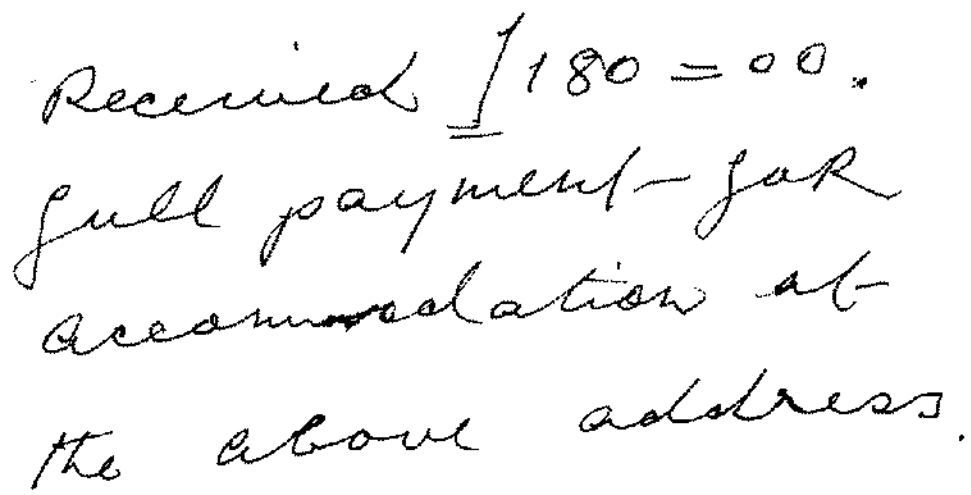 Received £180=00.
full payment for
accommodation at
the above address.